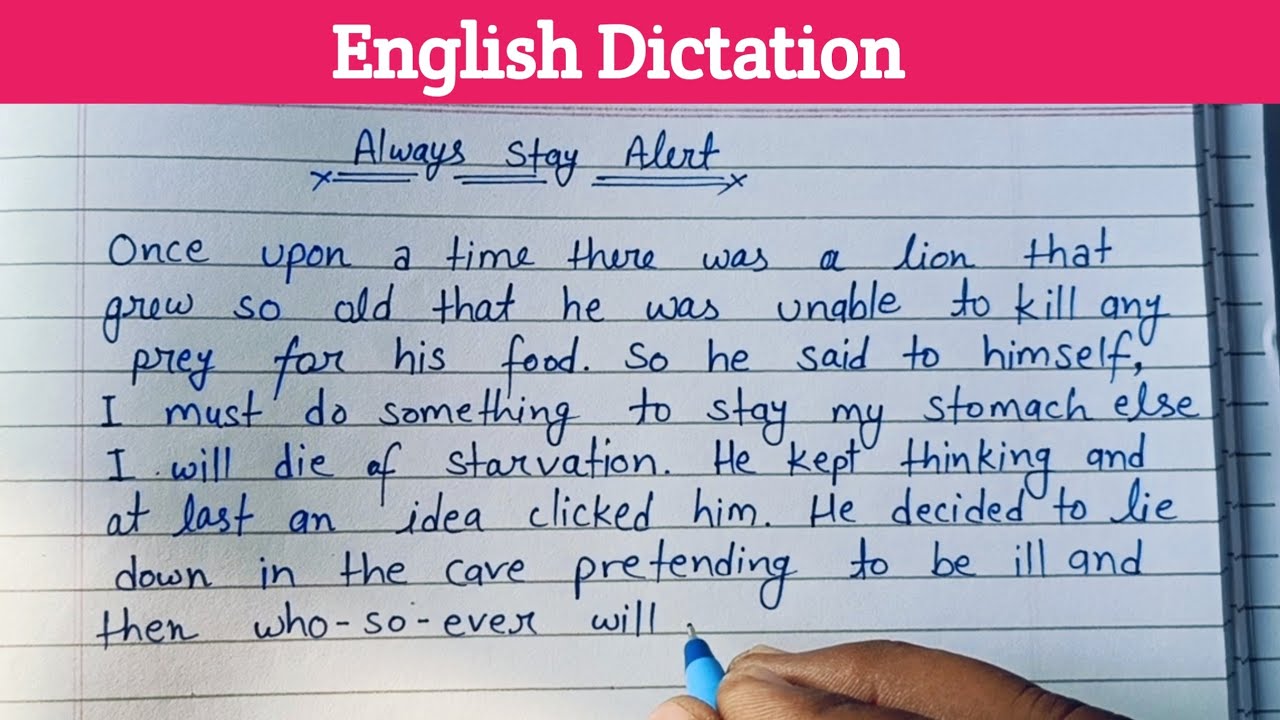 English Dictation
Always Stay Alert
Once upon a time there was a lion that
grew so old that he was unable to kill any
prey for his food. So he said to himself,
I must do something to stay my stomach else
I will die of starvation. He kept thinking and
at last an idea clicked him. He decided to lie
down in the cave pretending to be ill and
then who-so-ever will